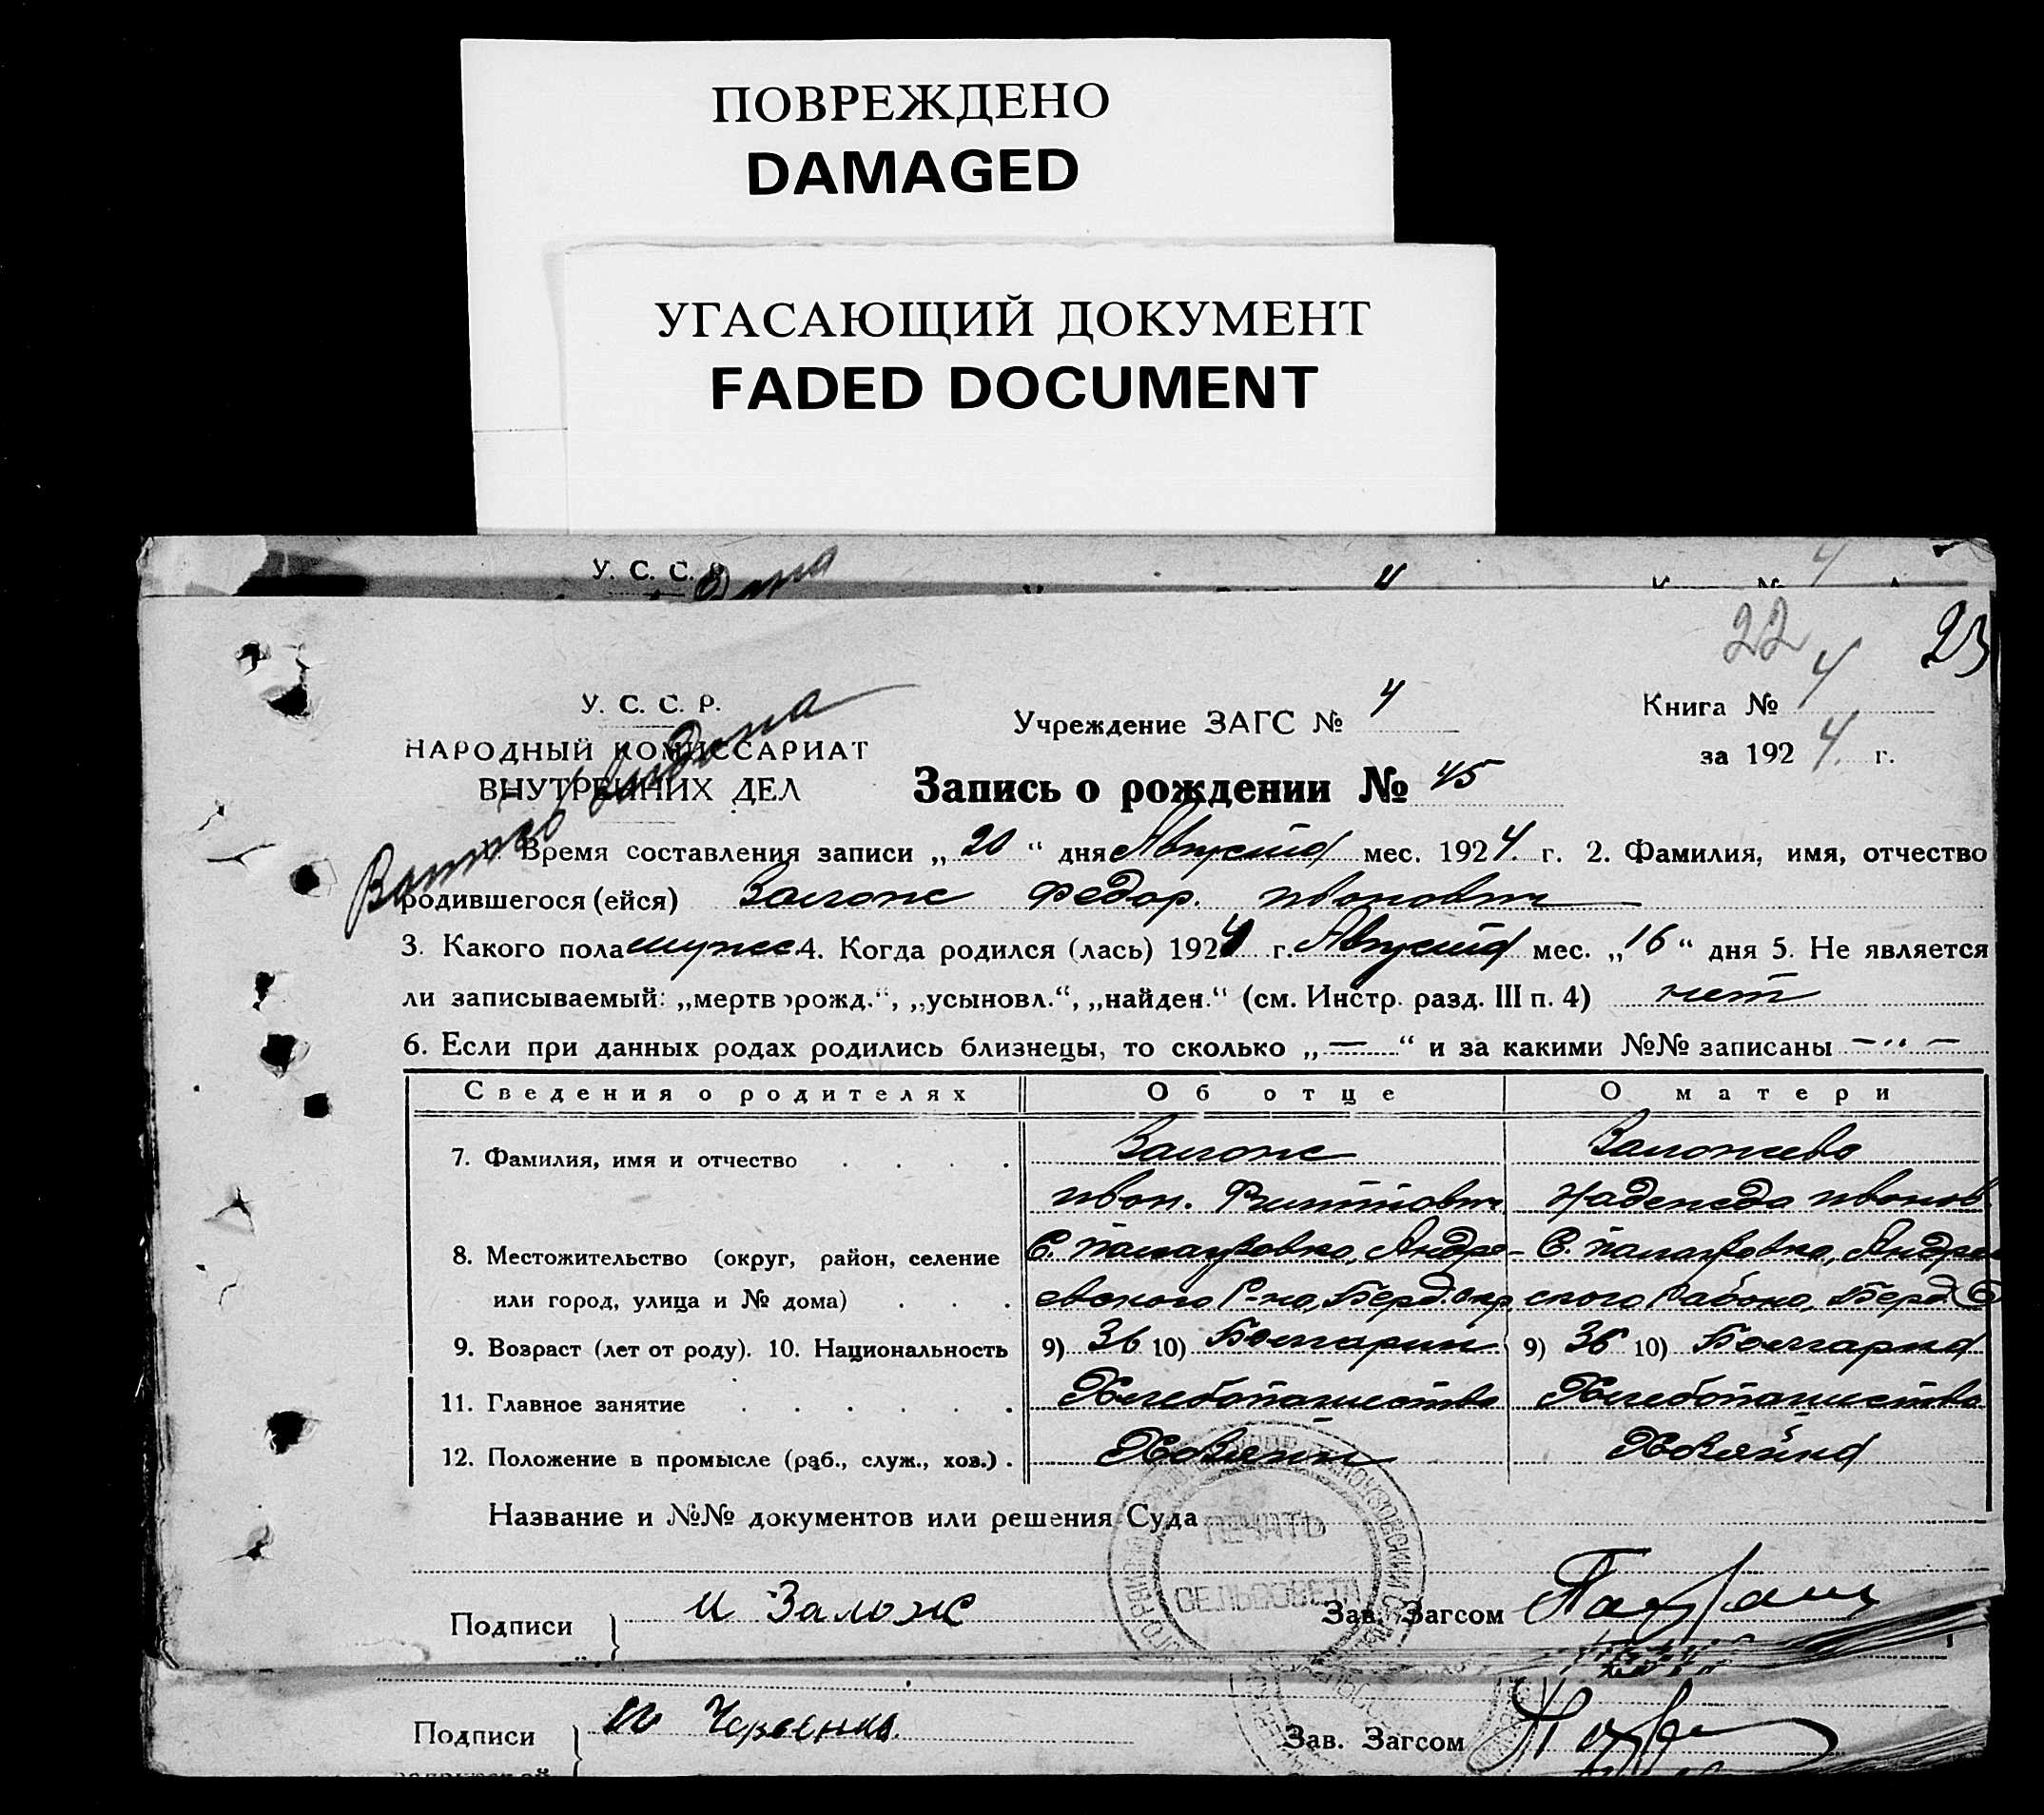 ПОВРЕЖДЕНО
DAMAGED
УГАСАЮЩИЙ ДОКУМЕНТ
FADED DOCUMENT
У. С. С. Р. 4 4
22 23
У. С. С. Р. Учреждение ЗАГС № 4 Книга № 4
НАРОДНЫЙ КОМИССАРИАТ за 1924 г.
ВНУТРЕННИХ ДЕЛ Запись о рождении № 45
1. Время составления записи „20“ дня Августа мес. 1924 г. 2. Фамилия, имя, отчество
родившегося (ейся) Залож Федор. Иванович
3. Какого пола мужск. 4. Когда родился (лась) 1924 г. Августа мес. „16“ дня 5. Не является
ли записываемый: „мертворожд.“, „усыновл.“, „найден.“ (см. Инстр. разд. III п. 4) нет
6. Если при данных родах родились близнецы, то сколько „—“ и за какими №№ записаны — " —
Сведения о родителях Об отце О матери
7. Фамилия, имя и отчество Залож Заложева
Иван. Филиппович Надежда Иванов.
8. Местожительство (округ, район, селение С. Палаузовка, Андре- С. Палаузовка, Андреев
или город, улица и № дома) евского Р-на, Берд. окр ского Района, Берд. О
9. Возраст (лет от роду). 10. Национальность 9) 36 10) Болгарин 9) 36 10) Болгарка
11. Главное занятие Хлебопашество Хлебопашество
12. Положение в промысле (раб., служ., хоз.) Хозяин Хозяйка
Название и №№ документов или решения Суда
ПЕЧАТЬ
СЕЛЬСОВЕТА
Подписи И Залож Зав. Загсом
Подписи Зав. Загсом